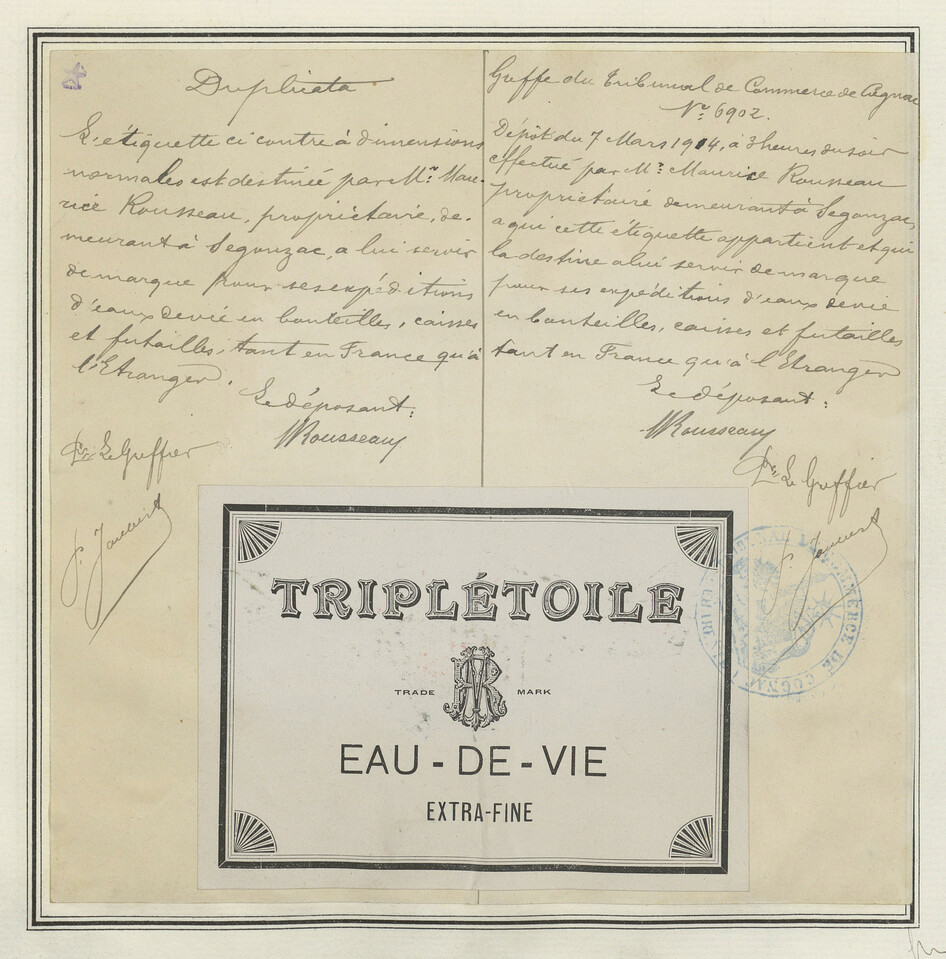 Duplicata
L'étiquette ci contre à dimensions
normales est destinée par Mr. Mau-
rice Rousseau, propriétaire, de-
meurant à Segonzac, a lui servir
de marque pour ses expéditions
d'eaux de vie en bouteilles, caisses
et futailles, tant en France qu'à
l'Etranger.
Le déposant:
MRousseau
Pr. Le Greffier
Greffe du Tribunal de Commerce de Cognac
No: 6902.
Dépôt du 7 Mars 1914, à 3 heures du soir
effectué par Mr: Maurice Rousseau
propriétaire demeurant à Segonzac,
a qui cette étiquette appartient et qui
la destine a lui servir de marque
pour ses expéditions d'eaux de vie
en bouteilles, caisses et futailles
tant en France qu'à l'Etranger
Le déposant:
MRousseau
Pr. Le Greffier
TRIPLÉTOILE
TRADE MR MARK
EAU-DE-VIE
EXTRA-FINE
COMMERCE DE COGNAC